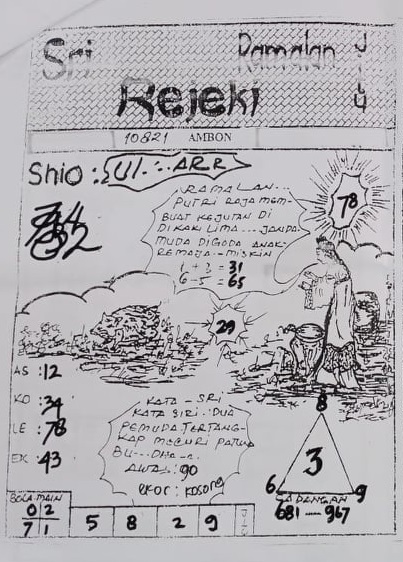 Sri
Ramalan
Jitu
Rejeki
10821 AMBON
Shio : ULARR
RAMALAN...
PUTRI RAJA MEM-
BUAT KEJUTAN DI
DIKAKI LIMA... JANDA
MUDA DIGODA ANAK
REMAJA - MISKIN
1 + 3 = 31
6 - 5 = 65
78
29
AS : 12
KO : 34
LE : 78
EK : 43
KATA - SRI
KATA SIRI.. DUA
PEMUDA TERTANG-
KAP MECURI
BU...
AWAS : 90
ekor : kosong
8
3
6
9
CADANGAN
681 - 967
BOLA MAIN
0 2
7 1
5 8 2 9